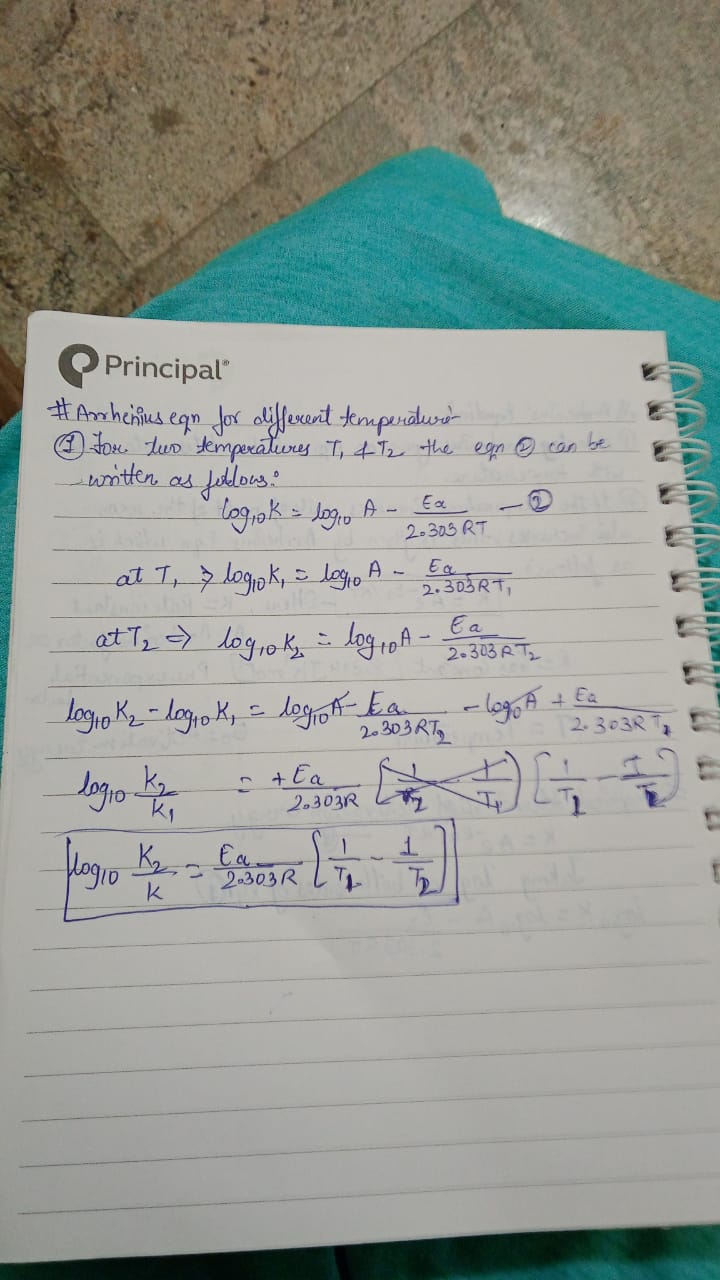 Principal®
# Arrhenius eqn for different temperature
① For two temperatures T₁ & T₂ the eqn ② can be
written as follows:
log₁₀K = log₁₀ A - Ea/2.303 RT - ②
at T₁ ⇒ log₁₀K₁ = log₁₀ A - Ea/2.303RT₁
at T₂ ⇒ log₁₀K₂ = log₁₀A - Ea/2.303RT₂
log₁₀K₂ - log₁₀K₁ = log₁₀A - Ea/2.303RT₂ - log₁₀A + Ea/2.303RT₁
log₁₀ K₂/K₁ = +Ea/2.303R [1/T₂ 1/T₁] [1/T₁ - 1/T₂]
log₁₀ K₂/K = Ea/2.303R [1/T₁ - 1/T₂]